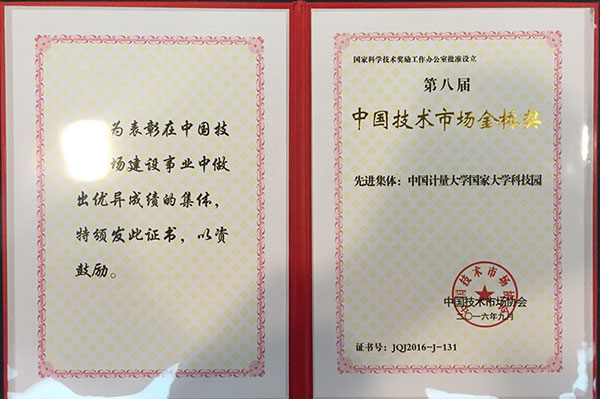 为表彰在中国技
场建设事业中做
出优异成绩的集体，
特颁发此证书，以资
鼓励。
国家科学技术奖励工作办公室批准设立
第八届
中国技术市场金桥奖
先进集体：中国计量大学国家大学科技园
中国技术市场协会
中国技术市场协会
二〇一六年九月
证书号：JQJ2016-J-131